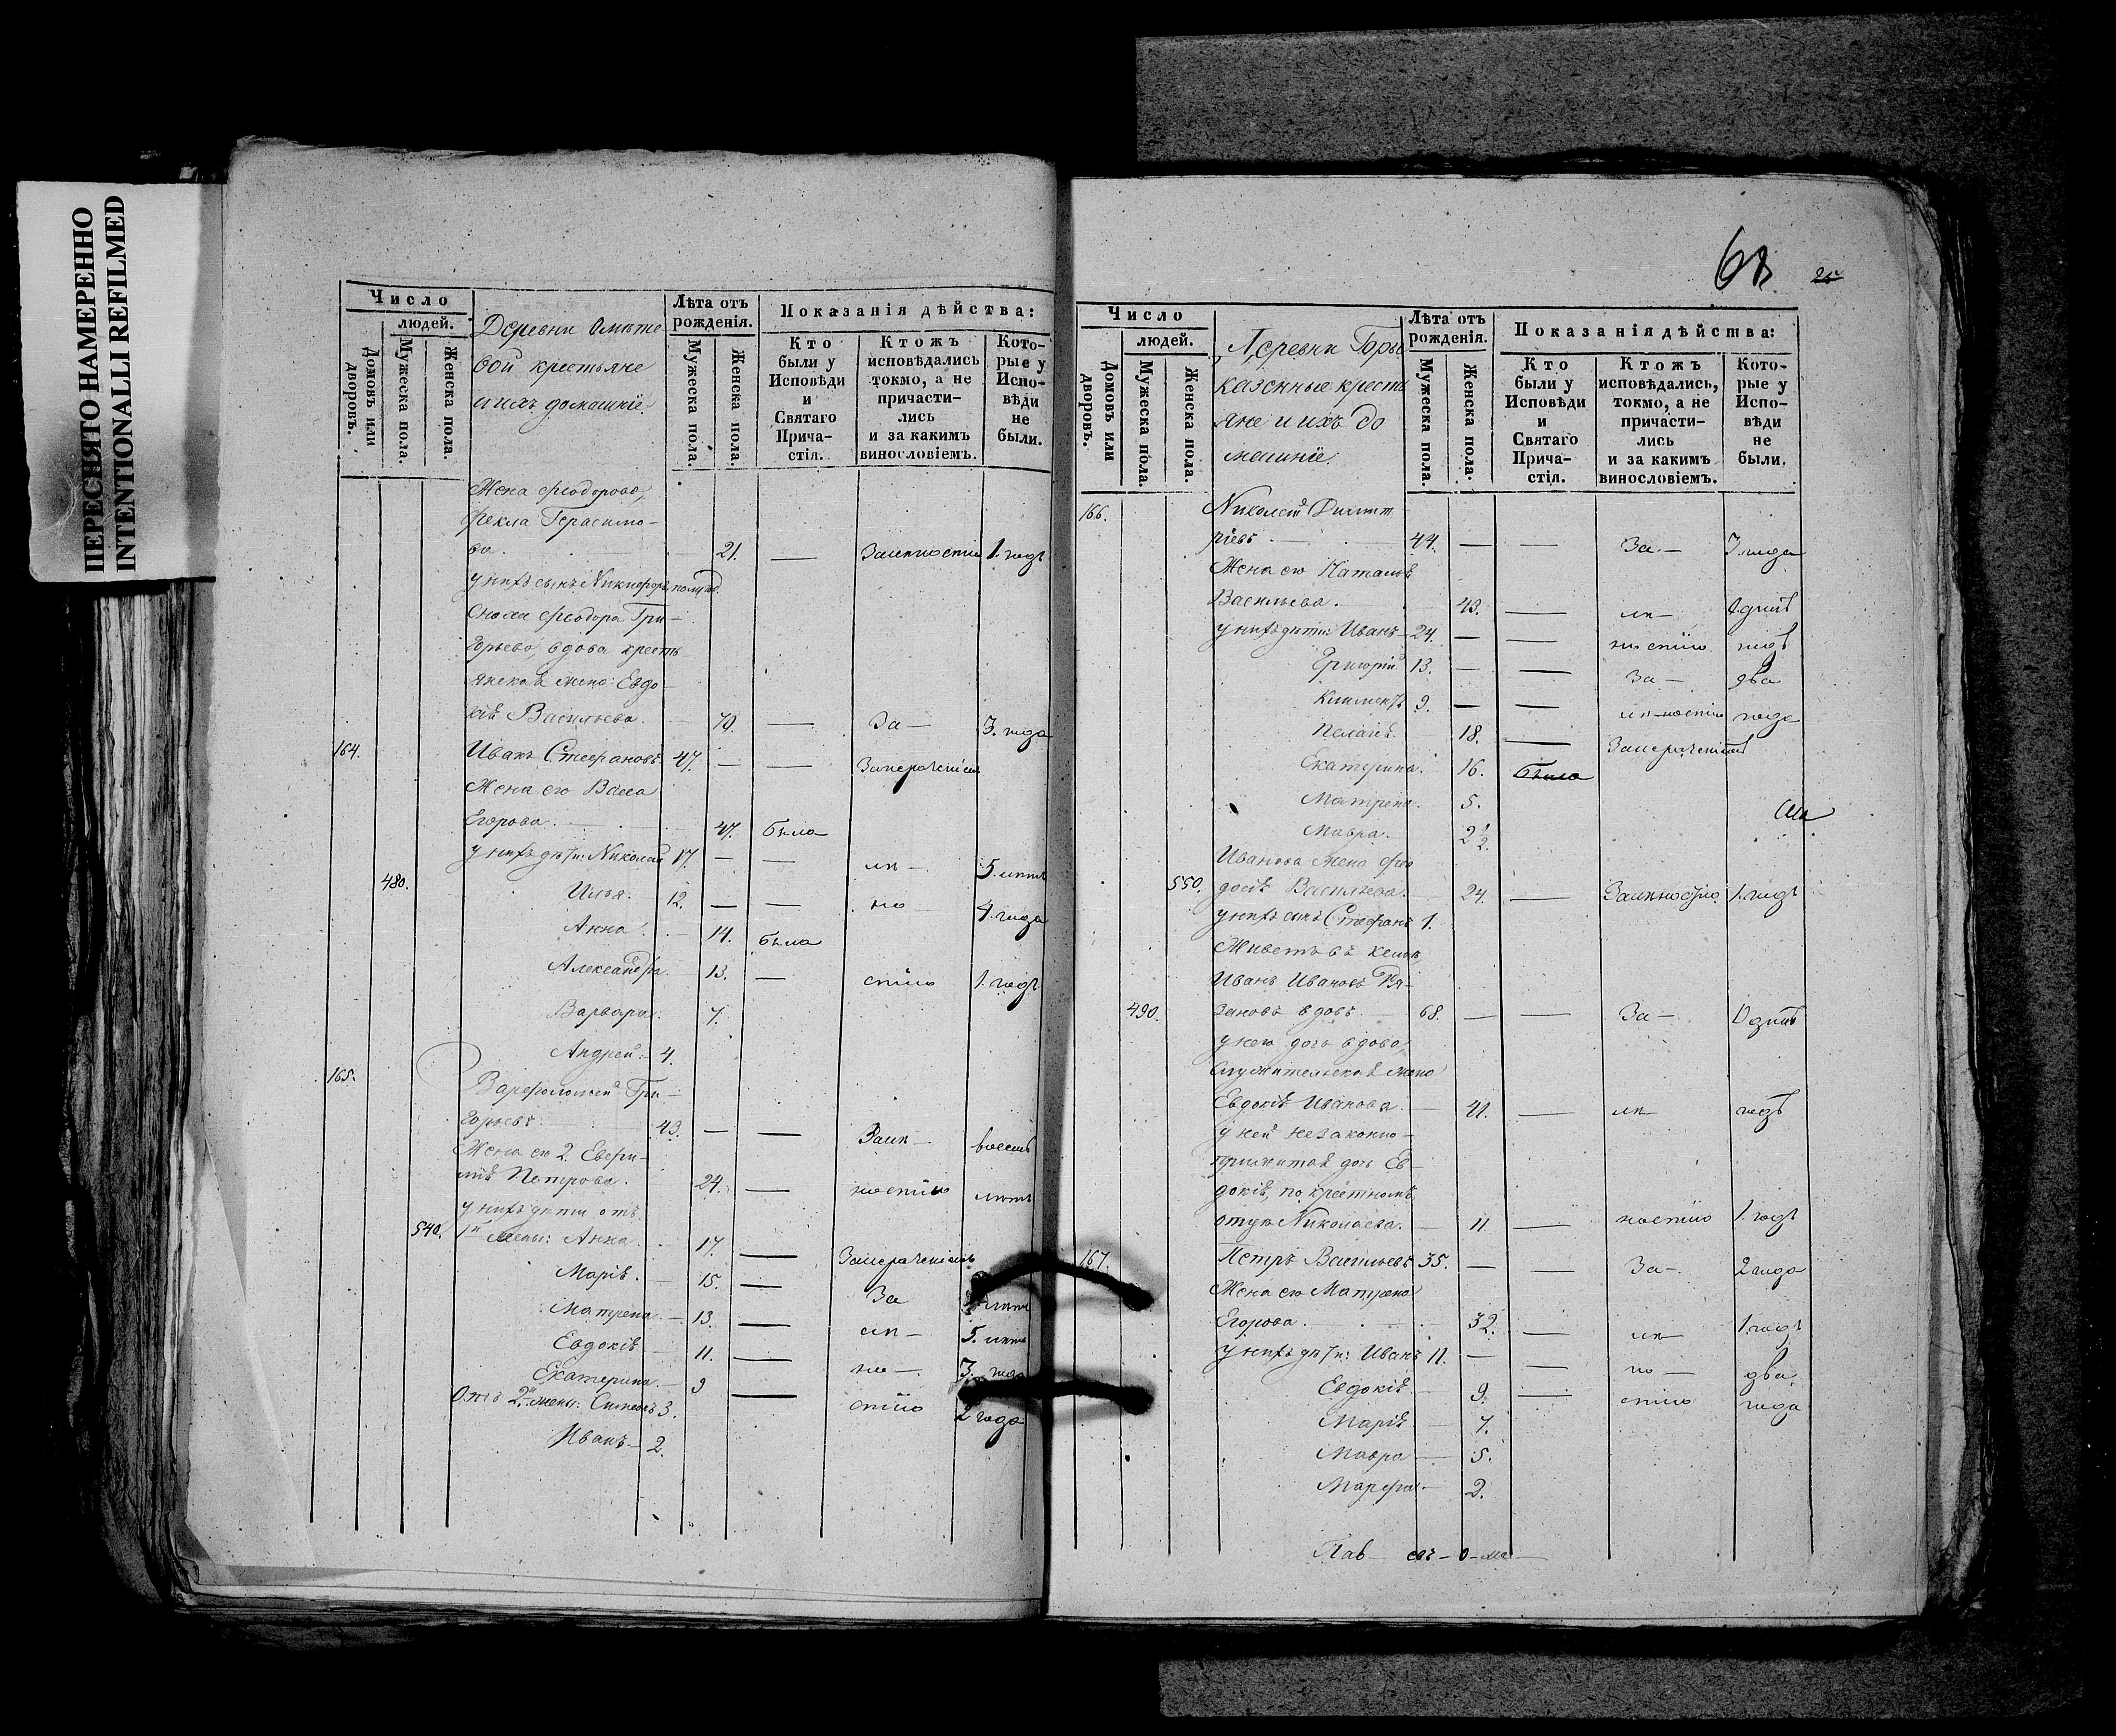 ПЕРЕСНЯТО НАМЕРЕННО
INTENTIONALLI REFILMED
Число
людей.
Домовъ или дворовъ.
Мужеска пола.
Женска пола.
Деревни
вой крестьяне
и ихъ домашніе
Лѣта отъ рожденія.
Мужеска пола.
Женска пола.
Показанія дѣйства:
Кто были у Исповѣди и Святаго Прича-стія.
Ктожъ исповѣдались токмо, а не причасти-лись и за какимъ винословіемъ.
Кото-рые у Испо-вѣди не были.
Жена Феодорова,
Фекла Герасимо-
ва. 21. — Залѣностію 1. годъ
у нихъ сынъ Никифоръ полугод.
Сноха Феодора Гри-
горьева, вдова кресть
янская жена: Евдо-
кія Васильева. 70. — За— 3. года
164. Иванъ Стефановъ. 47. — — Запераченіемъ
Жена его Васса
Егорова. 47. была
у нихъ дѣти: Николай 17. — — лѣ— 5. лѣтъ
480. Илья. 12. — — но 4. года
Анна. 14. была
Александра 13. — стію 1. годъ
Варвара. 7.
Андрей. 4.
165. Варфоломей Гри-
горьевъ. 43. — — Залѣ— восемь
Жена его 2. Евфи-
мія Петрова. 24. — ностію лѣтъ
у нихъ дѣти отъ
540. 1й жены: Анна. 17. — Запераченіемъ
Марія. 15. — За лѣтъ
Матрена. 13. — лѣ— 5. лѣтъ
Евдокія 11. — но— 3. года
Екатерина. 9 — стію 2 года
Отъ 2й жены: Симеонъ 3.
Иванъ— 2.
68 25
Число
людей.
Домовъ или дворовъ.
Мужеска пола.
Женска пола.
Деревни Горы
казенные кресть
яне и ихъ до
машніе.
Лѣта отъ рожденія.
Мужеска пола.
Женска пола.
Показанія дѣйства:
Кто были у Исповѣди и Святаго Прича-стія.
Ктожъ исповѣдались, токмо, а не причасти-лись и за какимъ винословіемъ.
Кото-рые у Испо-вѣди не были.
166. Николай Димит
ріевъ 44. — — За— 3. года
Жена его Наталья
Васильева. 43. — лѣ— одинъ
у нихъ дѣти: Иванъ 24. — — ностію годъ
Григорій 13. — — За— два
Климентъ 9. — — лѣностію года
Пелагія. 18. — Запераченіемъ
Екатерина. 16. была
Матрена. 5.
Мавра. 2½.
Иванова жена Фео
550. досія Васильева. 24. — Залѣностію 1. годъ
у нихъ сынъ Стефанъ 1.
Живетъ въ кельѣ,
Иванъ Ивановъ Ря-
490. зановъ вдовъ. 68. — — За— Одинъ
у него дочь вдова,
Служительская жена
Евдокія Иванова. 41. — лѣ— годъ
у ней незаконно-
прижитая дочь Ев-
докія, по крестномъ
отцѣ Николаева. 11 — ностію 1. годъ
167. Петръ Васильевъ 35. — — За— 2 года
Жена его Матрена
Егорова. 32. — лѣ— 1. годъ
у нихъ дѣти: Иванъ 11. — — но— два
Евдокія 9. — стію года
Марія 7.
Мавра 5.
Марфа. 2.